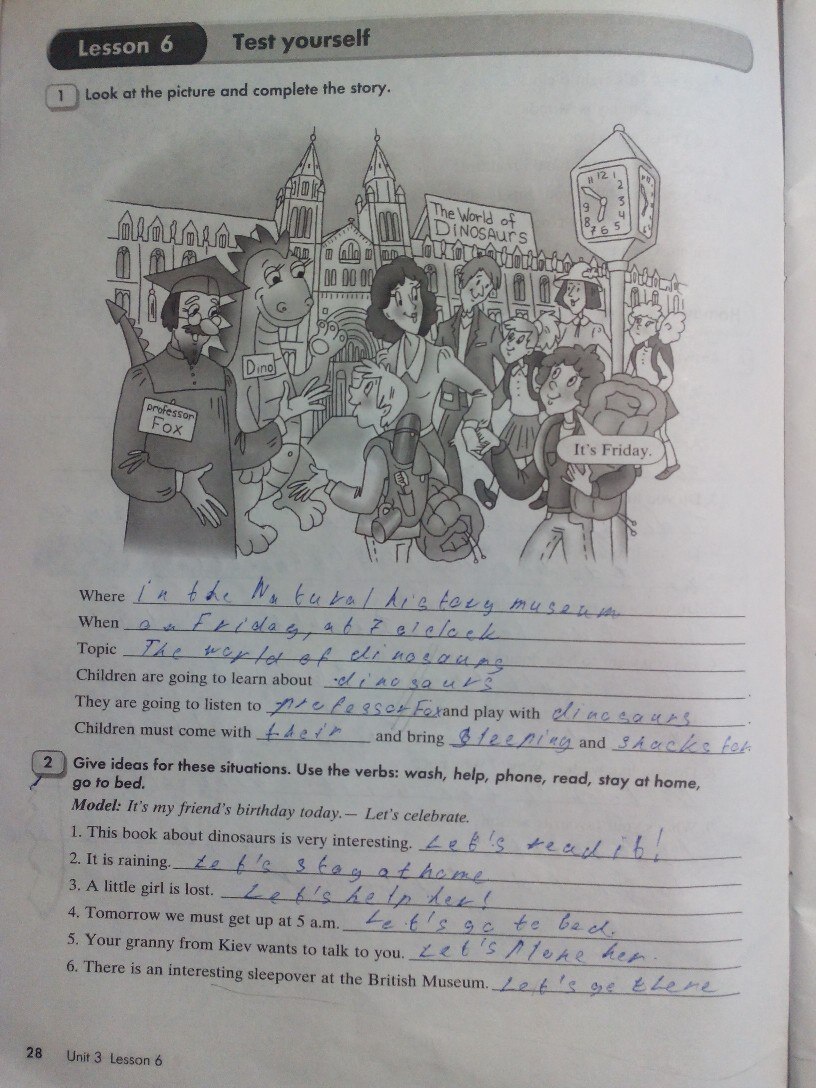 Lesson 6 Test yourself
1 Look at the picture and complete the story.
The World of
DINOSAURS
11 12 1
2
3
4
5
6
7
8
9
Dino
professor
Fox
It's Friday.
Where in the Natural history museum
When on Friday, at 7 o'clock
Topic The world of dinosaurs
Children are going to learn about dinosaurs.
They are going to listen to professor Fox and play with dinosaurs.
Children must come with their and bring sleeping and snacks for.
2 Give ideas for these situations. Use the verbs: wash, help, phone, read, stay at home,
go to bed.
Model: It's my friend's birthday today.— Let's celebrate.
1. This book about dinosaurs is very interesting. Let's read it!
2. It is raining. Let's stay at home
3. A little girl is lost. Let's help her!
4. Tomorrow we must get up at 5 a.m. Let's go to bed.
5. Your granny from Kiev wants to talk to you. Let's phone her.
6. There is an interesting sleepover at the British Museum. Let's go there
28 Unit 3 Lesson 6